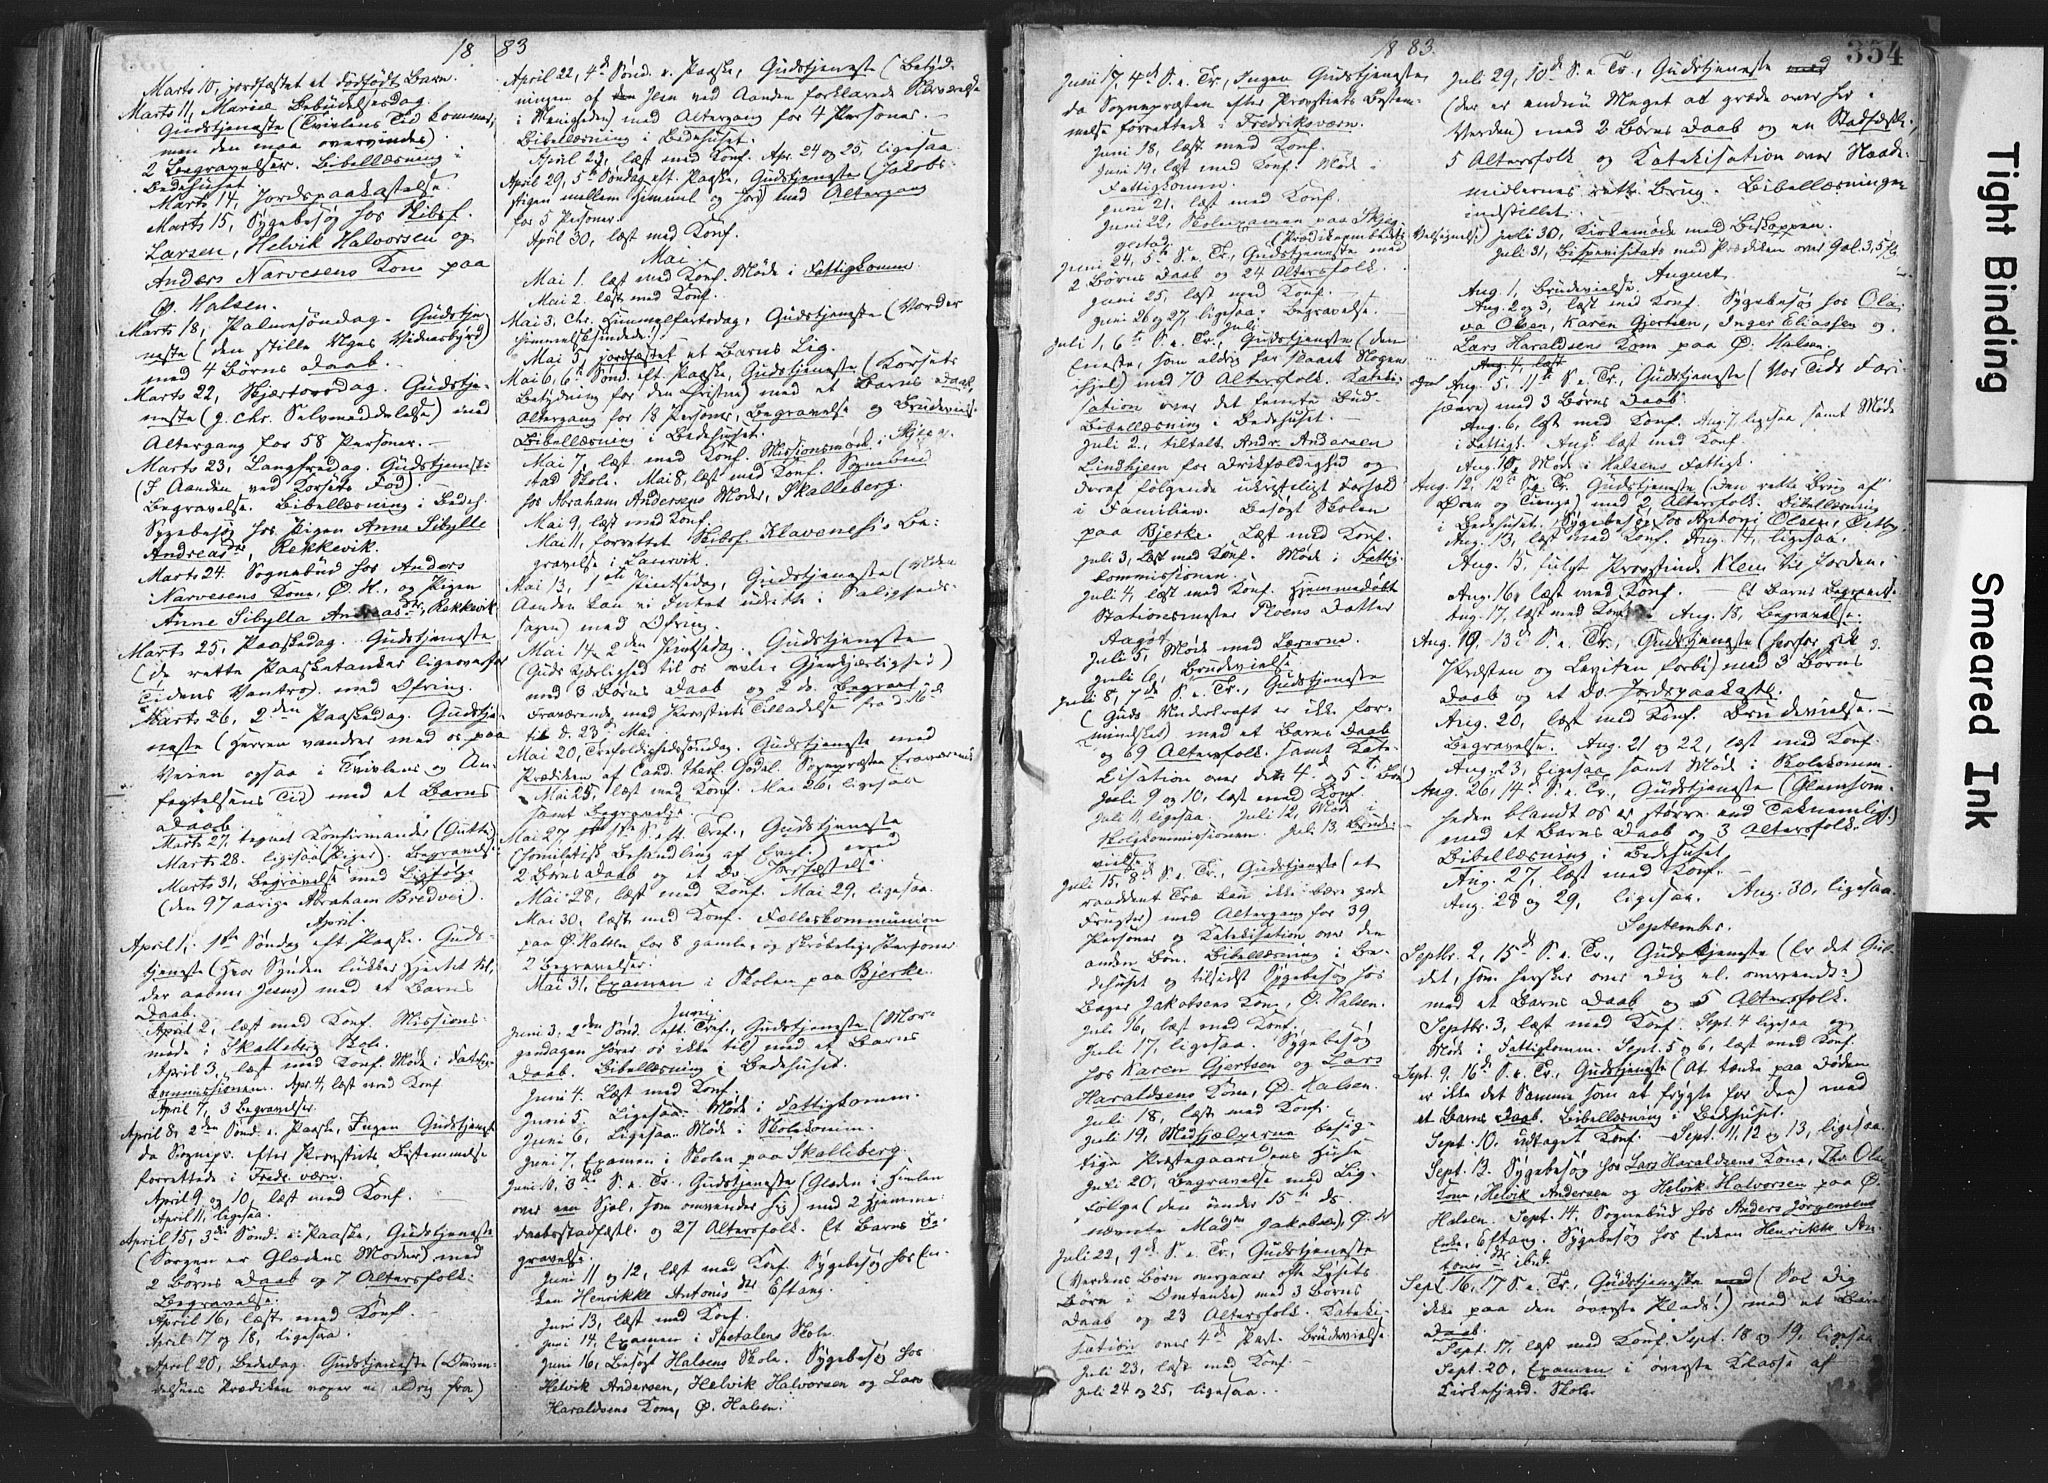 18 83
Marts 10, jordfæstet et dødfødt Barn.
Marts 11, Mariæ Bebudelsesdag.
Gudstjeneste (Tvivlens Tid kommer,
men den maa overvindes)
2 Begravelser. Bibellæsning i
Bedehuset.
Marts 14, Jordspaakastelse.
Marts 15, Sygebesøg hos Skibsf.
Larsen, Helvik Halvorsen og
Anders Narvesens Kone paa
Ø. Halsen.
Marts 18, Palmesøndag. Gudstje-
neste (den stille Uges Vidnesbyrd)
med 4 Børns Daab.
Marts 22, Skjærtorsdag. Gudstje-
neste (J. Chr. Selvmeddelelse) med
Altergang for 58 Personer.
Marts 23, Langfredag. Gudstjenest
(I Aanden ved Korsets Fod)
Begravelse. Bibellæsning i Bedeh.
Sygebesøg hos Pigen Anne Sibylle
Andreasdtr, Rekkevik.
Marts 24. Sognebud hos Anders
Narvesens Kone, Ø. H., og Pigen
Anne Sibylla Andreasdtr, Rekkevik
Marts 25, Paaskedag. Gudstjeneste
(de rette Paasketanker ligeoverfor
Tidens Vantro) med Ofring.
Marts 26, 2den Paaskedag. Gudstje-
neste (Herren vandrer med os paa
Veien ogsaa i Tvivlens og An-
fegtelsens Tid) med et Barns
Daab.
Marts 27, tegnet Konfirmander (Gutter)
Marts 28. ligesaa (Piger). Begravelse
Marts 31, Begravelse med Ligfølge
(den 97aarige Abraham Bredvei).
April.
April 1, 1ste Søndag eft. Paaske. Guds-
tjeneste (Hvor Synden lukker Hjertet til,
der aabner Jesus) med et Barns
Daab.
April 2, læst med Konf. Missions-
møde i Skalleberg Skole.
April 3, læst med Konf. Møde i Fattig-
kommissionen. Apr. 4, læst med Konf.
April 7, 3 Begravelser
April 8, 2den Sønd. e. Paaske, Ingen Gudstjeneste
da Sognepr. efter Provstiets Bestemmelse
forrettede i Fredr.værn.
April 9 og 10, læst med Konf.
April 11, ligesaa.
April 15, 3die Sønd. e. Paaske, Gudstjeneste
(Sorgen er Glædens Moder) med
2 Børns Daab og 7 Altersfolk.
Begravelse.
April 16, læst med Konf.
April 17 og 18, ligesaa.
April 20, Bededag. Gudstjeneste (Omven-
delsens Prædiken voxer vi aldrig fra)
April 22, 4de Sønd. e. Paaske, Gudstjeneste (Betyd-
ningen af den Ilen ved Aanden forklarede
i Menigheden) med Altergang for 4 Personer.
Bibellæsning i Bedehuset.
April 23, læst med Konf. Apr. 24 og 25, ligesaa.
April 29, 5te Søndag eft. Paaske, Gudstjeneste (Jakobs-
stigen mellem Himmel og Jord) med Altergang
for 5 Personer.
April 30, læst med Konf.
Mai
Mai 1. læst med Konf. Møde i Fattigkomm
Mai 2. læst med Konf.
Mai 3, Chr. Himmelfartsdag, Gudstjeneste (Vorder
himmelsksindede!)
Mai 5, jordfæstet et Barns Lig.
Mai 6, 6te Sønd. eft. Paaske, Gudstjeneste (Korsets
Betydning for den Christne) med et Barns Daab,
Altergang for 18 Personer, Begravelse og Brudevielse.
Bibellæsning i Bedehuset.
Mai 7, læst med Konf. Missionsmøde i Skjeg-
stad Skole. Mai 8, læst med Konf. Sognebud
hos Abraham Andersens Moder, Skalleberg.
Mai 9, læst med Konf.
Mai 11, forrettet Skibsf. Klaveness's Be-
gravelse i Laurvik.
Mai 13, 1ste Pintsedag, Gudstjeneste (Uden
Aanden kan vi Intet udrette i Saligheds-
sagen) med Ofring.
Mai 14, 2den Pintsedag. Gudstjeneste
(Guds Kjærlighed til os, vor Gjenkjærlighed)
med 3 Børns Daab og 2 do. Begravs.
Fraværende med Provstiets Tilladelse fra d. 16de
til d. 23de Mai.
Mai 20, Trefoldighedssøndag. Gudstjeneste med
Prædiken af Cand. theol. Godal. Sognepræsten fraværende
Mai 25, læst med Konf. Mai 26, ligesaa
samt Begravelse.
Mai 27, 1ste S. e. Tref., Gudstjeneste
(homiletisk Behandling af Evgl.) med
2 Børns Daab og et Do. Jordfæstelse.
Mai 28, læst med Konf. Mai 29, ligesaa.
Mai 30, læst med Konf. Fælleskommunion
paa Ø. Halsen for 8 gamle og skrøbelige Personer
2 Begravelser.
Mai 31, Examen i Skolen paa Bjerke.
Juni
Juni 3. 2den Sønd. eft. Tref., Gudstjeneste (Mor-
gendagen hører os ikke til) med et Barns
Daab. Bibellæsning i Bedehuset.
Juni 4. Læst med Konf.
Juni 5, Ligesaa. Møde i Fattigkomm.
Juni 6, Ligesaa. Møde i Skolekomm.
Juni 7, Examen i Skolen paa Skalleberg.
Juni 10, 3die S. e. Tr. Gudstjeneste (Glæden i Himlen
over een Sjæl, som omvender sig) med 2 Hjemme-
daabsstadfæst. og 27 Altersfolk. Et Barns Be-
gravelse.
Juni 11 og 12, læst med Konf. Sygebesøg hos En-
ken Henrikke Antonisdtr Eftang.
Juni 13, læst med Konf.
Juni 14, Examen i Spetalens Skole.
Juni 16, Besøgt Halsens Skole. Sygebesøg hos
Helvik Andersen, Helvik Halvorsen og Lars
Haraldsens Kone, Ø. Halsen.
18 83.
354
Juni 17, 4de S. e. Tr., Ingen Gudstjeneste,
da Sognepræsten efter Provstiets Bestem-
melse forrettede i Fredriksværn.
Juni 18, læst med Konf.
Juni 19, læst med Konf. Møde i
Fattigkomm.
Juni 21, læst med Konf.
Juni 22, Skoleexamen paa Skjeg-
gestad.
Juni 24, 5te S. e. Tr., Gudstjeneste (Prædikeembedets Velsignelse) med
2 Børns Daab og 24 Altersfolk.
Juni 25, læst med Konf.
Juni 26 og 27, ligesaa. Begravelse.
Juli
Juli 1, 6te S. e. Tr., Gudstjeneste (den
Eneste, som aldrig har slaaet Nogen
ihjel) med 70 Altersfolk. Kateki-
sation over det femte Bud.
Bibellæsning i Bedehuset.
Juli 2, tiltalt Andr. Andersen
Lindhjem for Drikfældighed og
deraf følgende ukristeligt Forhold
i Familien. Besøgt Skolen
paa Bjerke. Læst med Konf.
Juli 3, Læst med Konf. Møde i Fattig-
kommissionen.
Juli 4, læst med Konf. Hjemmedøbt
Stationsmester Proens Datter
Aagot.
Juli 5, Møde med Lærerne.
Juli 6, Brudevielse.
Juli 8, 7de S. e. Tr., Gudstjeneste
(Guds Underkraft er ikke for-
mindsket) med et Barns Daab
og 69 Altersfolk samt Kate-
kisation over det 4de og 5te Bud
Juli 9 og 10, læst med Konf.
Juli 11, ligesaa. Juli 12, Møde i
Skolekommissionen. Juli 13, Brude-
vielse.
Juli 15, 8de S. e. Tr., Gudstjeneste (et
raaddent Træ kan ikke bære gode
Frugter) med Altergang for 39
Personer og Katekisation over den
anden Bøn. Bibellæsning i Be-
dehuset og tilsidst Sygebesøg hos
Bager Jakobsens Kone, Ø. Halsen.
Juli 16, læst med Konf.
Juli 17, ligesaa. Sygebesøg
hos Karen Gjertsen og Lars
Haraldsens Kone, Ø. Halsen.
Juli 18, læst med Konf.
Juli 19, Medhjælperne besig-
tige Præstegaardens Huse
Juli 20, Begravelse med Lig-
følge (den under 15te ds.
nævnte Madm Jakobsen), Ø. H.
Juli 22, 9de S. e. Tr., Gudstjeneste
(Verdens Børn overgaaer ofte Lysets
Børn i Omtanke) med 3 Børns
Daab og 23 Altersfolk. Kateki-
sation over 4de Part. Brudevielse.
Juli 23, læst med Konf.
Juli 24 og 25, ligesaa.
Juli 29, 10de S. e. Tr., Gudstjeneste med
(der er endnu Meget at græde over her i
Verden) med 2 Børns Daab og en Stadfæst.,
5 Altersfolk og Katekisation over Naade-
midlernes rette Brug. Bibellæsningen
indstillet.
Juli 30, Kirkemøde med Biskoppen.
Juli 31, Bispevisitats med Prædiken over Gal. 3,5 fg.
August
Aug. 1, Brudevielse.
Aug. 2 og 3, læst med Konf. Sygebesøg hos Ola-
va Olsen, Karen Gjertsen, Inger Eliassen og
Lars Haraldsens Kone paa Ø. Halsen.
Aug. 4, læst
Aug. 5, 11te S. e. Tr., Gudstjeneste (Vor Tids Fari-
sæere) med 3 Børns Daab.
Aug. 6, læst med Konf. Aug. 7, ligesaa samt Møde
i Fattigk. Aug. 8 læst med Konf.
Aug. 10, Møde i Halsens Fattigk.
Aug. 12, 12te S. e. Tr. Gudstjeneste (Den rette Brug af
Øren og Tunge) med 2 Altersfolk. Bibellæsning
i Bedehuset. Sygebesøg hos Antoni Olsen,
Aug. 13, læst med Konf. Aug. 14, ligesaa.
Aug. 15, fulgt Provstinde Klem til Jorden.
Aug. 16, læst med Konf. Et Barns Begravelse
Aug. 17, læst med Konf. Aug. 18, Begravelse.
Aug. 19, 13de S. e. Tr., Gudstjeneste (hvorfor gik
Præsten og Leviten forbi) med 3 Børns
Daab og et Do. Jordspaakast.
Aug. 20, læst med Konf. Brudevielse.
Begravelse. Aug. 21 og 22, læst med Konf.
Aug. 23, ligesaa samt Møde i Skolekomm.
Aug. 26, 14de S. e. Tr., Gudstjeneste (Glemsom-
heden blandt os er større end Taknemligh.)
med et Barns Daab og 3 Altersfolk.
Bibellæsning i Bedehuset.
Aug. 27, læst med Konf.
Aug. 28 og 29, ligesaa. Aug. 30, ligesaa.
September.
Septbr. 2, 15de S. e. Tr., Gudstjeneste (Er det Gul-
det, som hersker over dig el. omvendt?)
med et Barns Daab og 5 Altersfolk.
Septbr. 3, læst med Konf. Sept. 4 ligesaa og
Møde i Fattigkomm. Sept. 5 og 6, læst med Konf.
Sept. 9. 16de S. e. Tr., Gudstjeneste (At tænke paa Døden
er ikke det Samme som at frygte for den) med
et Barns Daab. Bibellæsning i Bedehuset.
Sept. 10, udtaget Konf. Sept. 11, 12 og 13, ligesaa.
Sept. 13. Sygebesøg hos Lars Haraldsens Kone, Thv. Ols.
Kone, Helvik Andersen og Helvik Halvorsen paa Ø.
Halsen. Sept. 14. Sognebud hos Anders Jørgensens
Enke, Eftang. Sygebesøg hos Enken Henrikke An-
tonisdtr ibid.
Sept. 16, 17 S. e. Tr., Gudstjeneste med (Sæt dig
ikke paa den øverste Plads!) med et Barns
Daab.
Sept. 17, læst med Konf. Sept. 18 og 19, ligesaa.
Sept. 20, Examen i øverste Klasse af
Kirkefjerd. Skole
Tight Binding
Smeared Ink